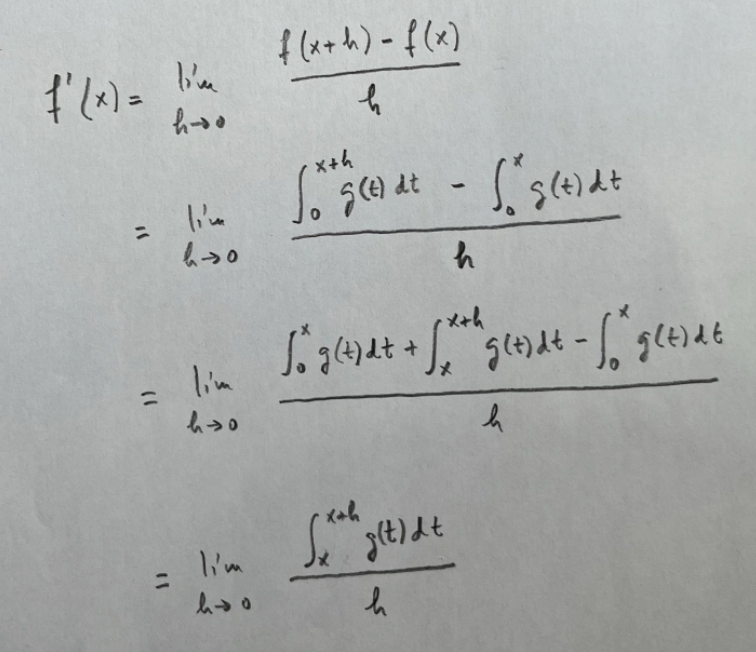 f'(x) = lim_{h→0} \frac{f(x+h) - f(x)}{h}
= lim_{h→0} \frac{∫_0^{x+h} g(t) dt - ∫_0^x g(t) dt}{h}
= lim_{h→0} \frac{∫_0^x g(t) dt + ∫_x^{x+h} g(t) dt - ∫_0^x g(t) dt}{h}
= lim_{h→0} \frac{∫_x^{x+h} g(t) dt}{h}